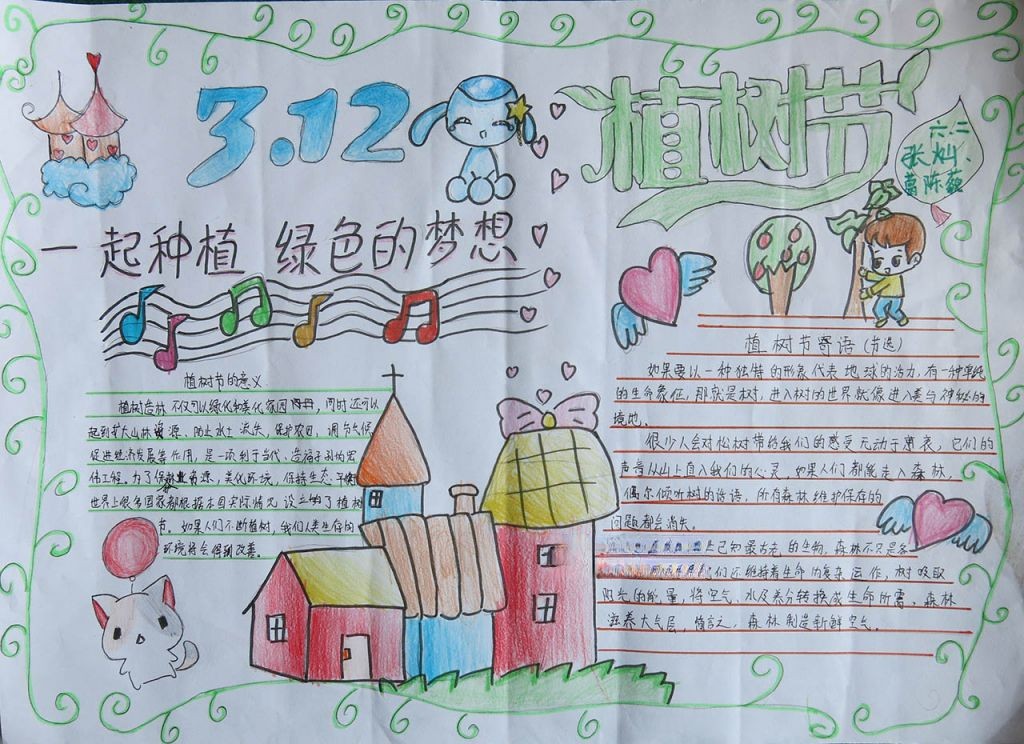 3.12
植树节
六.二
张灿、
葛陈薇
一起种植 绿色的梦想
植树节的意义
植树造林不仅可以绿化和美化家园，同时还可以
起到扩大山林资源、防止水土流失，保护农田，调节气候，
促进经济发展等作用，是一项利于当代、造福子孙的宏
伟工程。为了保护林业资源，美化环境，保持生态平衡，
世界上很多国家都根据本国实际情况设立了植树
节。如果人们不断植树，我们人类生存的
环境将会得到改善。
植树节寄语(节选)
如果要以一种独特的形象代表地球的活力，有一种单纯
的生命象征，那就是树，进入树的世界就像进入美与神秘的
境地。
很少人会对松树带给我们的感受无动于衷，它们的
声音从山上自入我们的心灵。如果人们都能走入森林，
偶尔倾听树的诗语，所有森林维护保存的
问题都会消失。
上已知最古老的生物。森林不只是
们还维持着生命的复杂运作，树吸取
阳光的能量，将空气、水及养分转换成生命所需。森林
滋养大气层，简言之，森林制造新鲜空气。